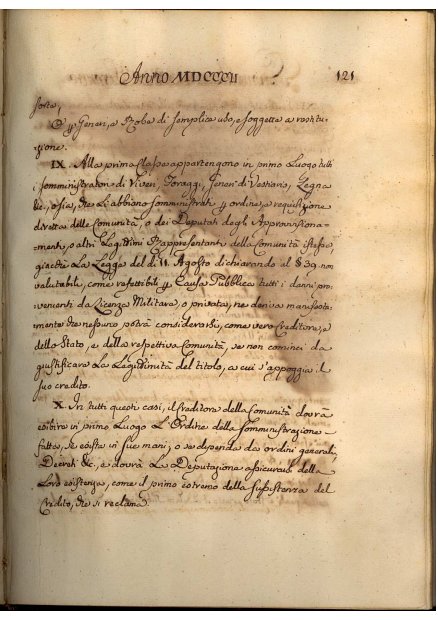 Anno MDCCCII 121
sorta,
O p Generi, e Robe di semplice uso, e soggette a restitu-
zione.
IX. Alla prima classe appartengono in primo Luogo tutti
i somministratori di Viveri, Foraggi, Generi di Vestiario, Legna
&c., o sia, che Li abbiano somministrati p ordine, e requisizione
diretta delle Comunità, o dei Deputati degli Approvvisiona-
menti, o altri Legittimi Rappresentanti della Comunità istessa,
giacchè La Legge del dì 11. Agosto dichiarando al § 39. non
valutabili, come refettibili p Causa Pubblica tutti i danni pro-
venienti da Licenza Militare, o privata, ne deriva manifesta-
mente che nessuno potrà considerarsi, come vero Creditore, e
dello Stato, e della respettiva Comunità, se non cominci da
giustificare La Legittimità del titolo, a cui s'appoggia il
suo credito.
X. In tutti questi casi, il Creditore della Comunità dovrà
esibire in primo Luogo L'Ordine della Somministrazione
fatta, se esista in sue mani; o se dipenda da ordini generali,
Decreti &c., e dovrà La Deputazione assicurarsi della
Loro esistenza, come il primo estremo della sussistenza del
Credito, che si reclama.